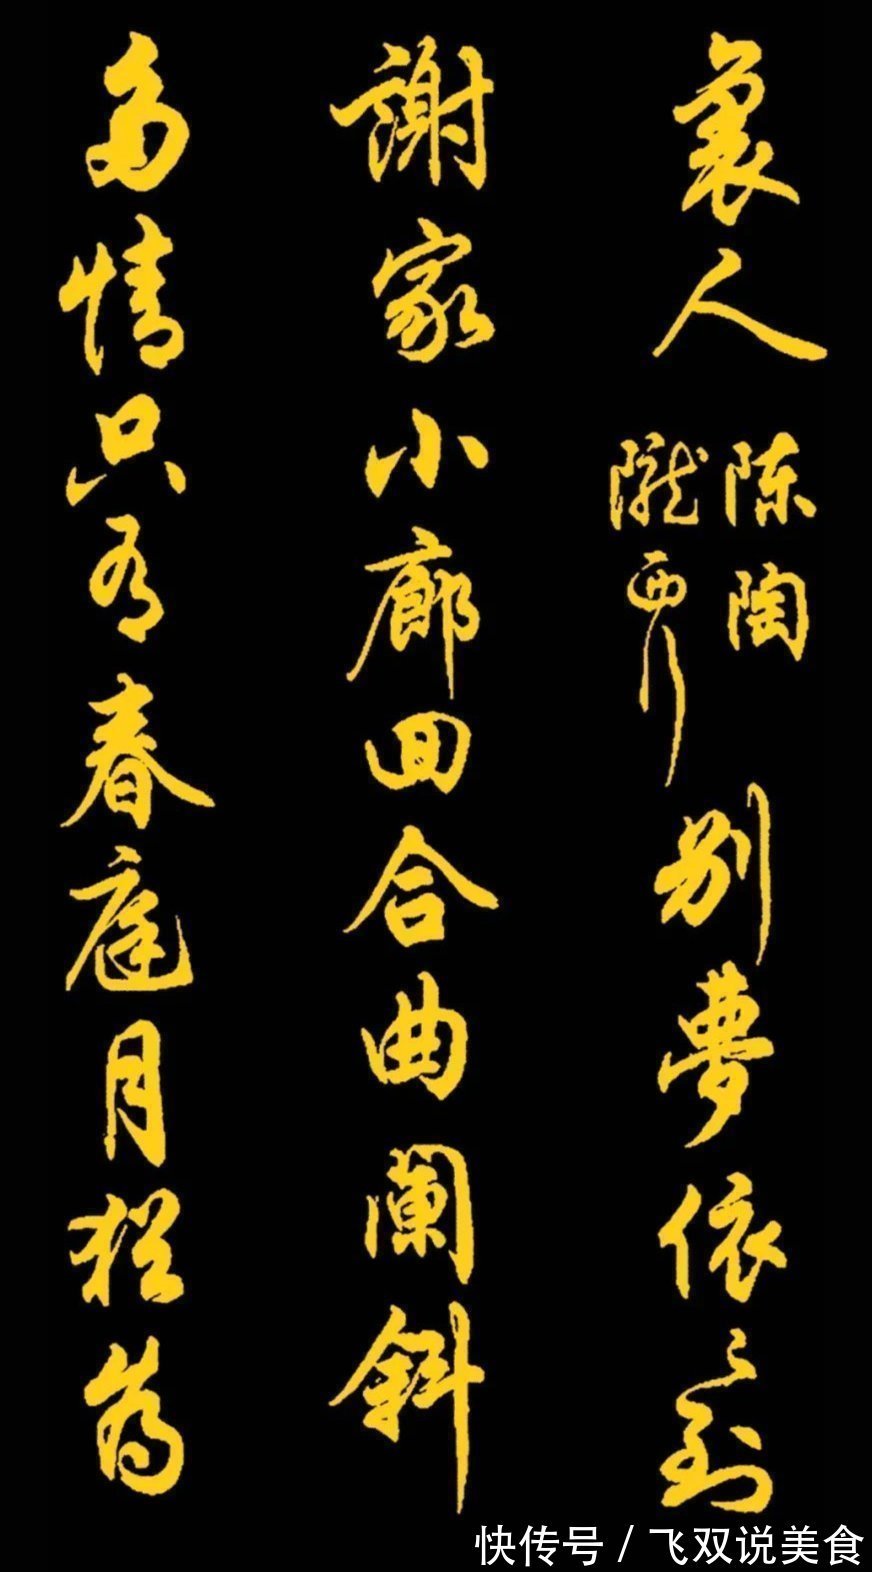 裏人
陈陶
陇西行
别夢依〻到
謝家小廊回合曲阑斜
多情只有春庭月猶为
快传号 / 飞双说美食